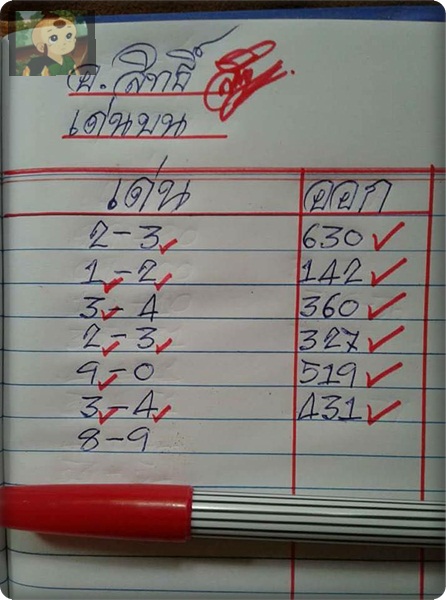 อ. สิทธิ์
เด่นบน
เด่น ออก
2-3 630
1-2 142
3-4 360
2-3 327
9-0 519
3-4 431
8-9